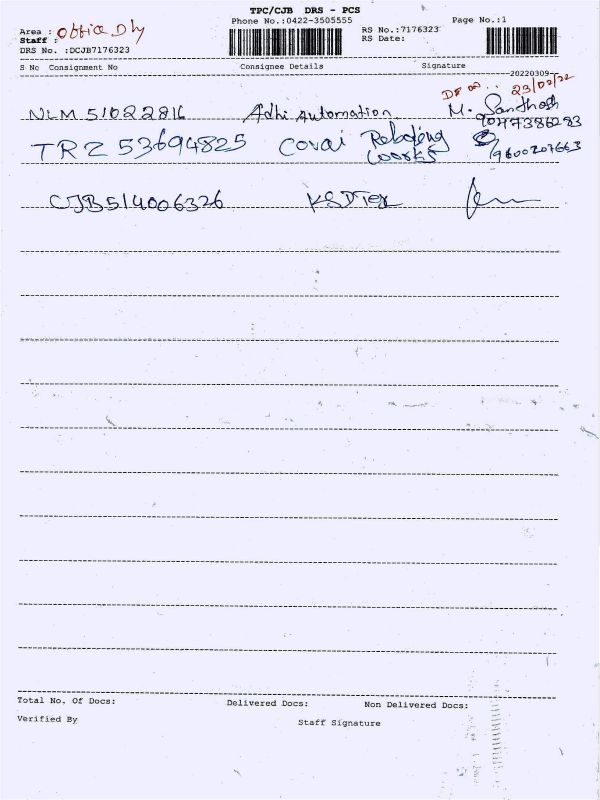 TPC/CJB DRS - PCS
Phone No.:0422-3505555
Page No.:1
Area : Office Dly
Staff :
DRS No. :DCJB7176323
RS No.:7176323
RS Date:
S No Consignment No Consignee Details Signature
20220309
23/02/22
NLM 51022816 Adhi Automation M. Santhosh
9047386283
TRZ 53694825 Covai Reboting
Works
9600207663
CJB514006326 KSDTex
Total No. Of Docs: Delivered Docs: Non Delivered Docs:
Verified By Staff Signature